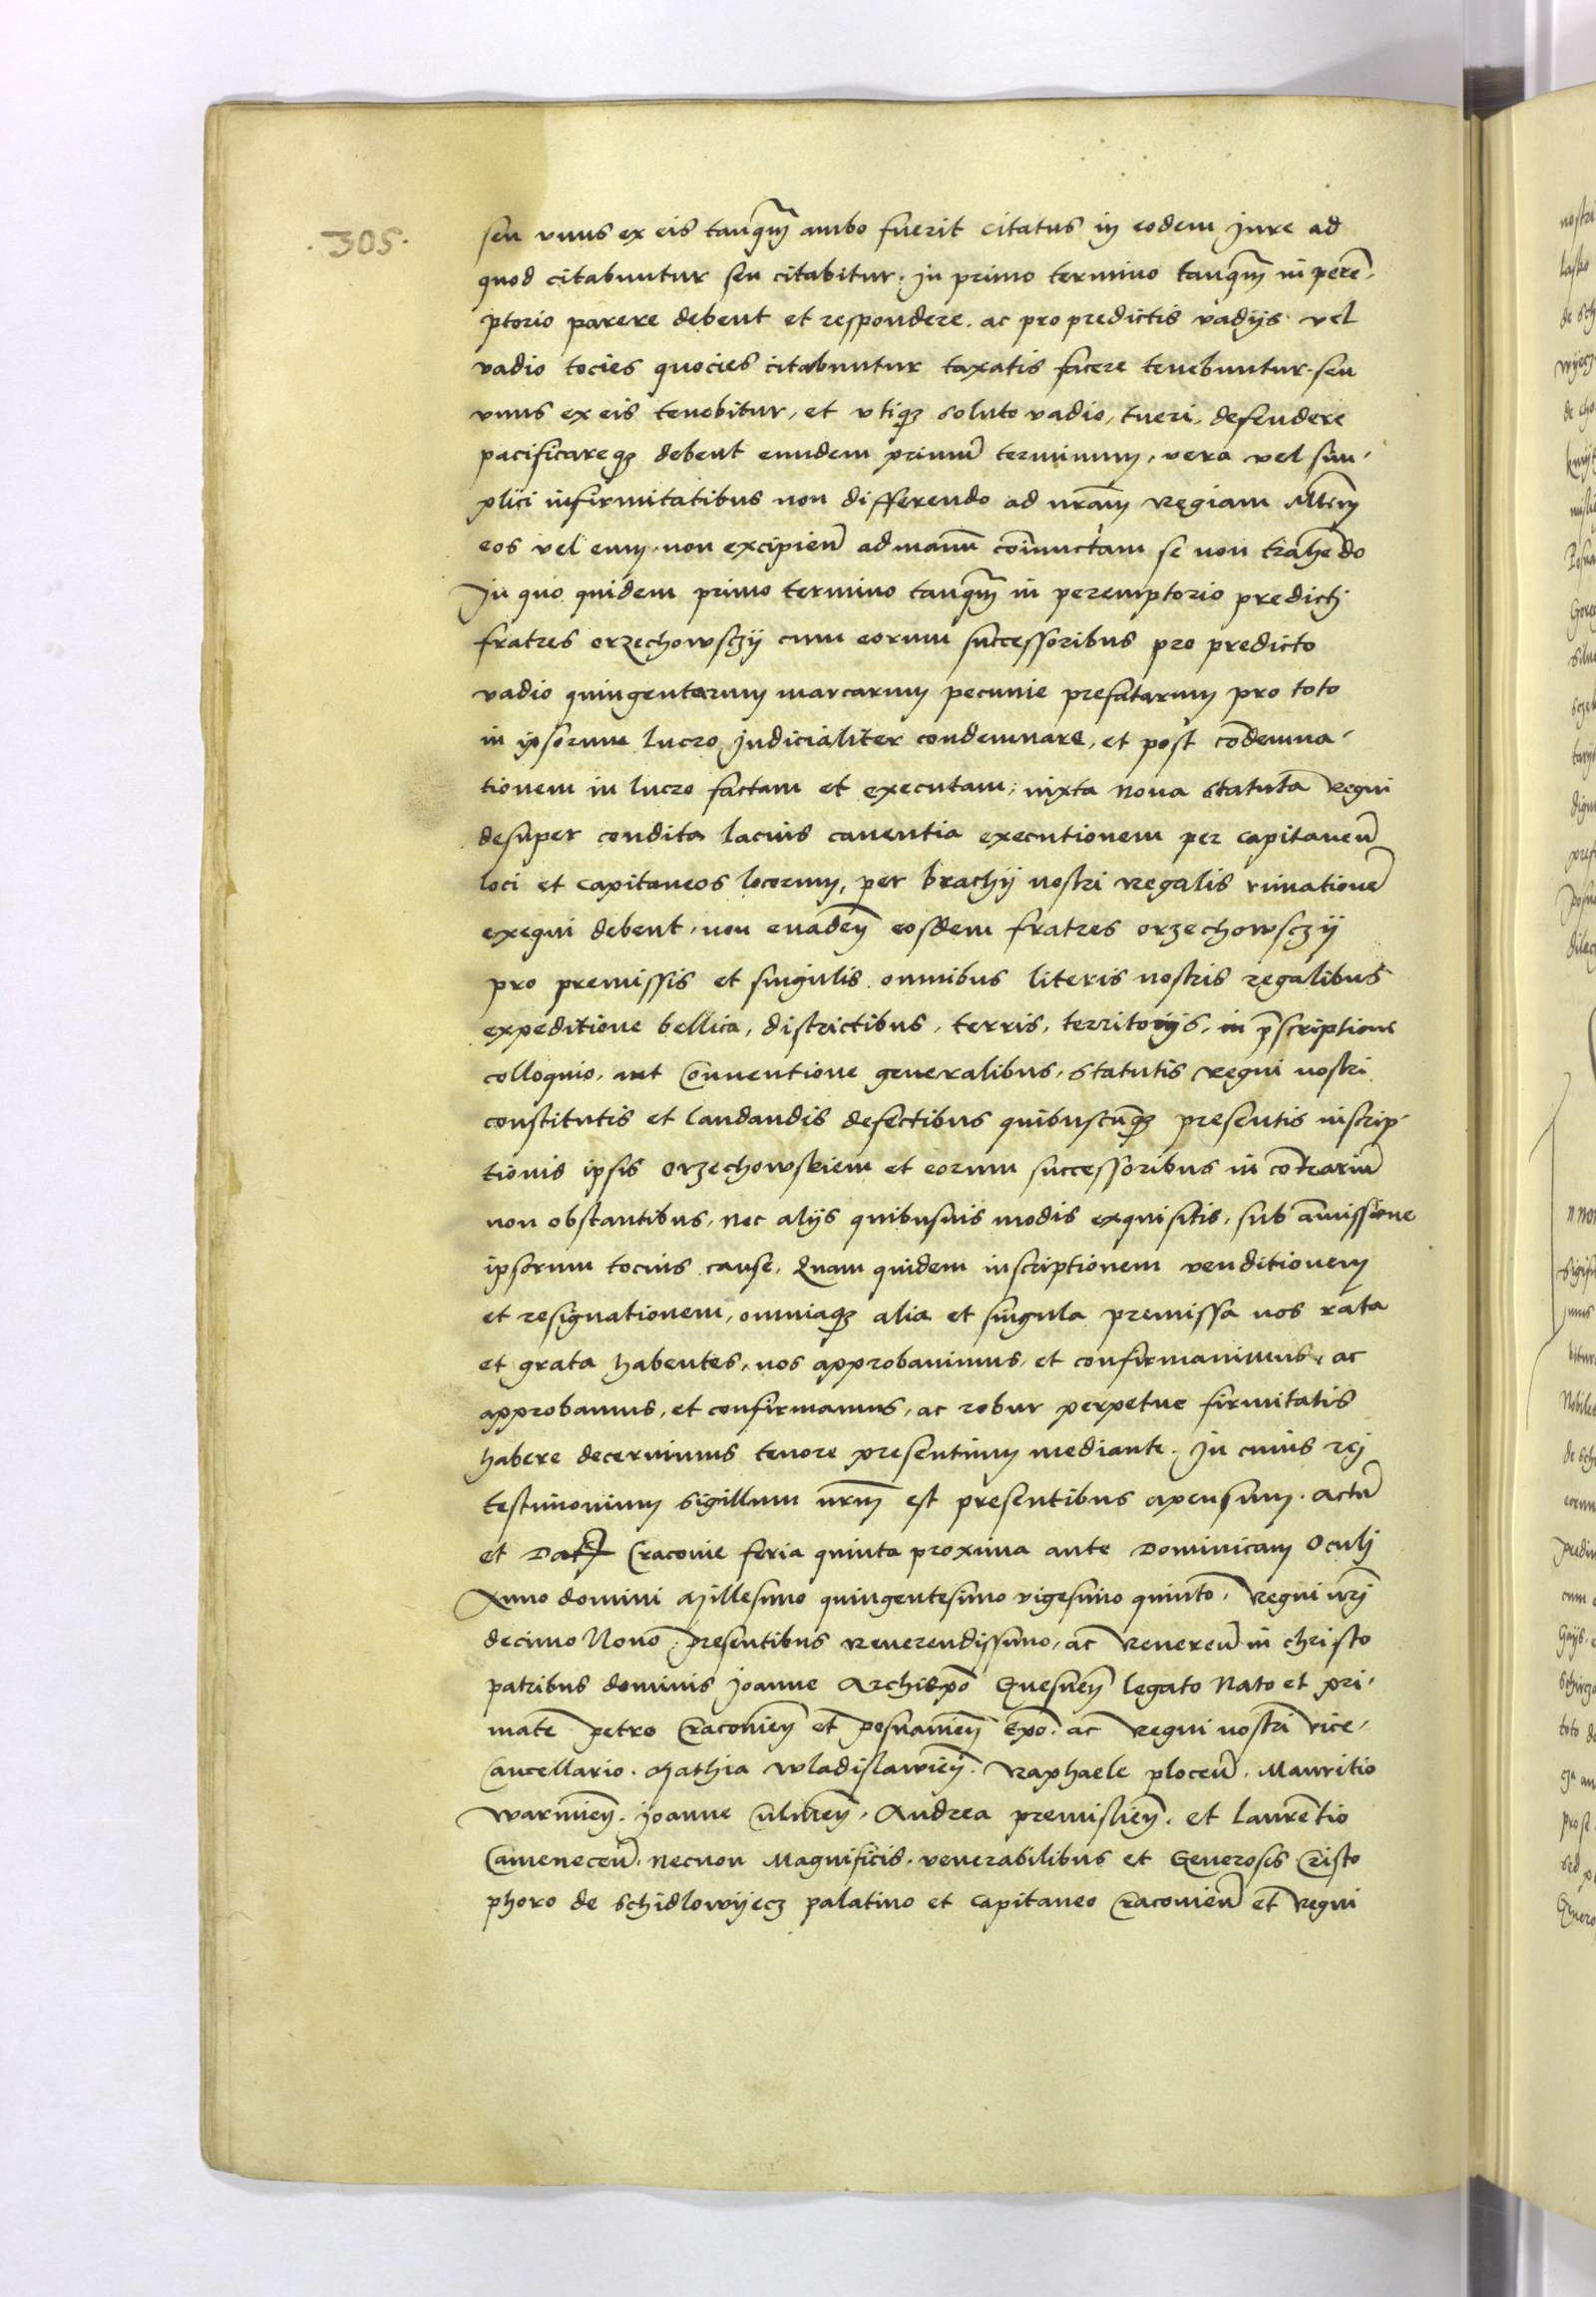 .305.
seu vnus ex eis tanq̃ꝫ ambo fuerit citatus in eodem jure ad
quod citabuntur seu citabitur. in primo termino tanq̃ꝫ in perē-
ptorio parere debent et respondere. ac pro predictis vadijs vel
vadio tocies quocies citabuntur taxatis facere tenebuntur. seu
vnus ex eis tenebitur, et vtiqꝫ soluto vadio, tueri, defendere
pacificareqꝫ debent eundem primũ terminum, vera vel sim-
plici infirmitatibus non differendo ad nr̃am regiam Mtem̃
eos vel eum non excipieñ ad manũ coniunctam se non trahēdo
In quo quidem primo termino tanq̃ꝫ in peremptorio predictj
fratres orzechowsczij cum eorum successoribus pro predicto
vadio quingentarum marcarum pecunie prefatarum pro toto
in ipsorum lucro judicialiter condemnare, et post cõdemna-
tionem in lucro factam et executam, iuxta noua statuta Regni
desuper condita lacius cauentia executionem per capitaneũ
loci et capitaneos locorum, per brachij nostri regalis
exequi debent, non euadeñ eosdem fratres orzechowsczij
pro premissis et singulis omnibus literis nostris regalibus
expeditione bellica, districtibus, terris, territorijs, in p̃scriptione
colloquio, aut Conuentione generalibus, statutis regni nostri
constitutis et laudandis defectibus quibuscũqꝫ presentis inscrip-
tionis ipsis orzechowskiem et eorum successoribus in cõtrariũ
non obstantibus, nec alijs quibusuis modis exquisitis, sub amissione
ipsorum tocius cause. Quam quidem inscriptionem venditionem
et resignationem, omniaqꝫ alia et singula premissa nos rata
et grata habentes, nos approbauimus, et confirmauimus, ac
approbamus, et confirmamus, ac robur perpetue firmitatis
habere decernimus tenore presentium mediante. In cuius rej
testimonium sigillum nr̃m est presentibus apensum. actũ
et Dat Cracouie feria quinta proxima ante Dominicam Oculj
Anno domini Millesimo quingentesimo vigesimo quinto, Regni nr̃j
decimo Nono. Presentibus reuerendissimo, ac Reuereñ in christo
patribus dominis Joanne Archiepõ Gnesneñ legato Nato et pri-
mate Petro Cracouieñ et Posnanieñ Epõ. ac Regni nostri vice-
Cancellario. Mathia wladislawieñ. Raphaele ploceñ. Mauritio
warmieñ. Joanne Culmeñ. Andrea premislieñ. et laurētio
Cameneceñ. necnon Magnificis. venerabilibus et Generosis Cristo
phoro de Schidlowijecz palatino et capitaneo Cracouieñ et Regni